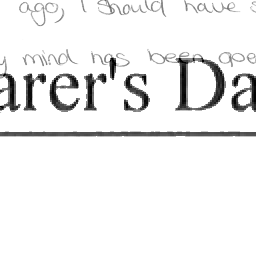 ago, I should have
mind has been
arer's Da